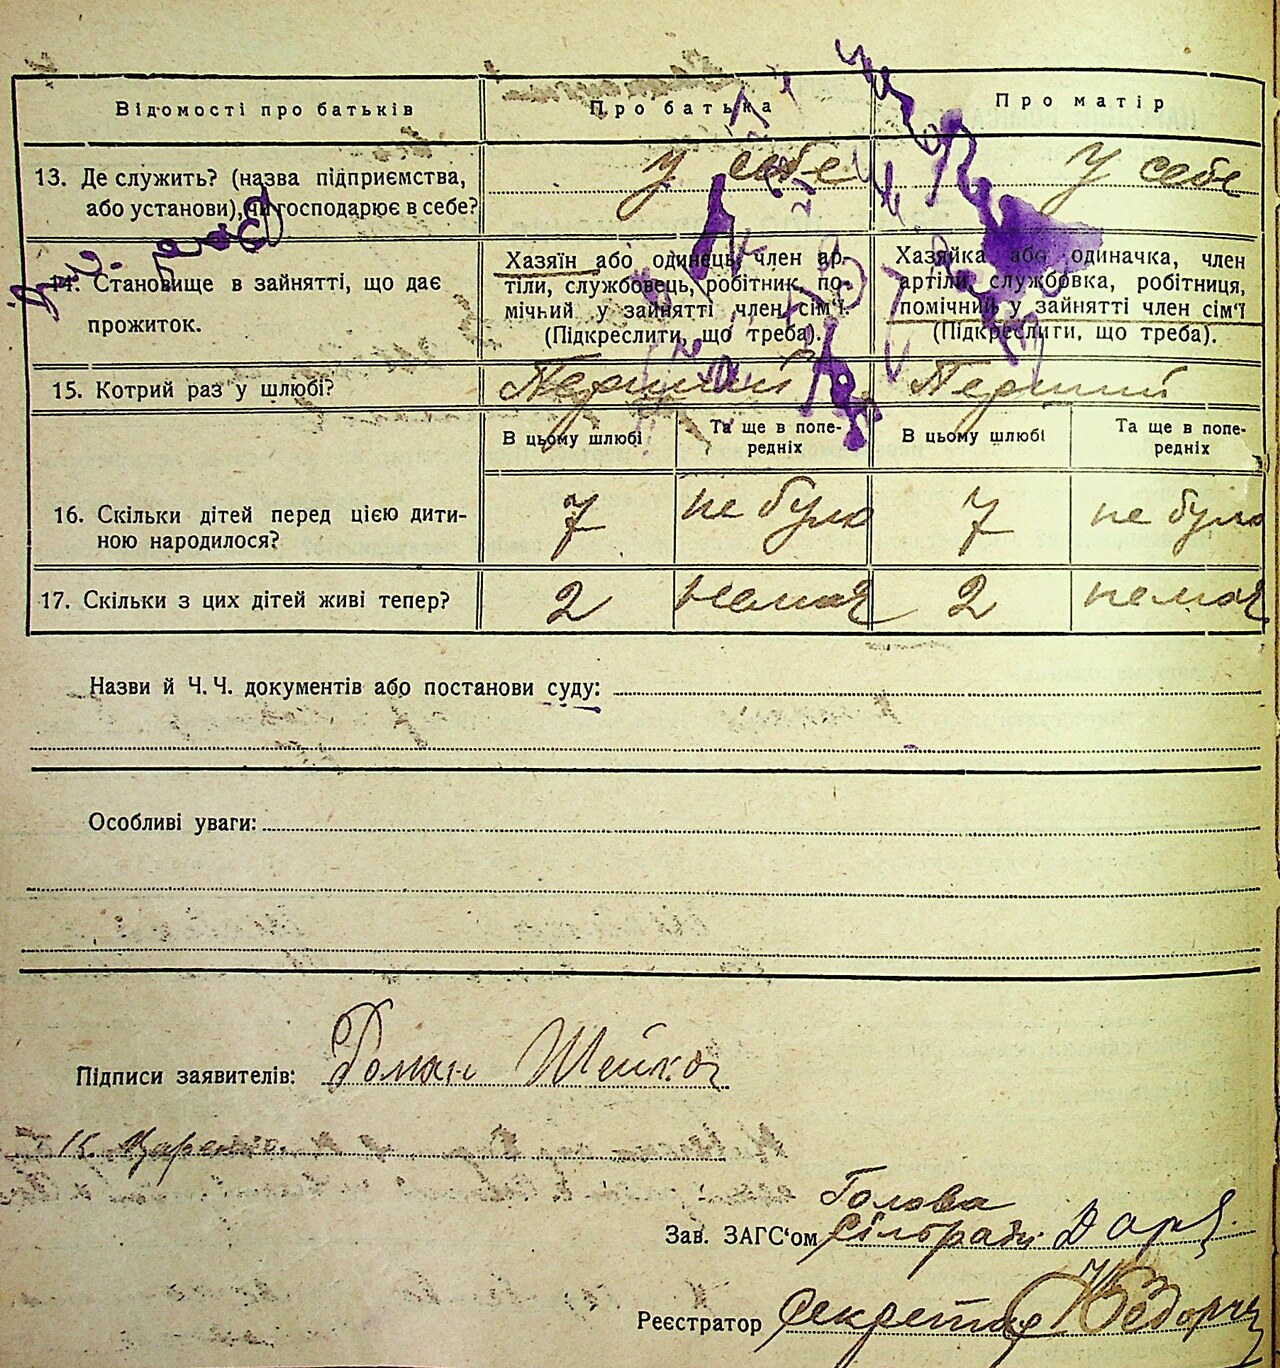 Відомості про батьків
Про батька
Про матір
13. Де служить? (назва підприємства,
або установи), чи господарює в себе?
У себе
У себе
14. Становище в зайнятті, що дає
прожиток.
Хазяїн або одинець, член ар-
тілі, службовець, робітник, по-
мічний у зайнятті член сім'ї.
(Підкреслити, що треба).
Хазяйка або одиначка, член
артілі, службовка, робітниця,
помічний у зайнятті член сім'ї
(Підкреслити, що треба).
15. Котрий раз у шлюбі?
Перший
Перший
В цьому шлюбі
Та ще в попе-
редніх
В цьому шлюбі
Та ще в попе-
редніх
16. Скільки дітей перед цією дити-
ною народилося?
7
не було
7
не було
17. Скільки з цих дітей живі тепер?
2
немає
2
немає
Назви й Ч. Ч. документів або постанови суду:
Особливі уваги:
Підписи заявителів: Роман
Голова
Зав. ЗАГС'ом Сільради
Реєстратор Секретар